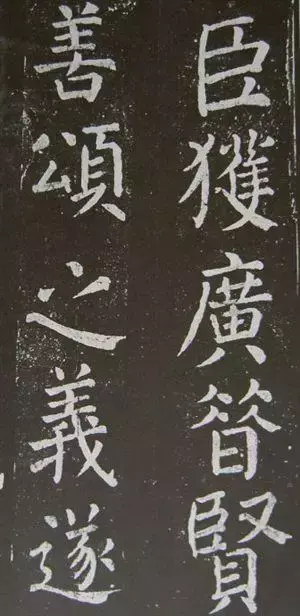 臣獲廣昔賢
善頌之義遂